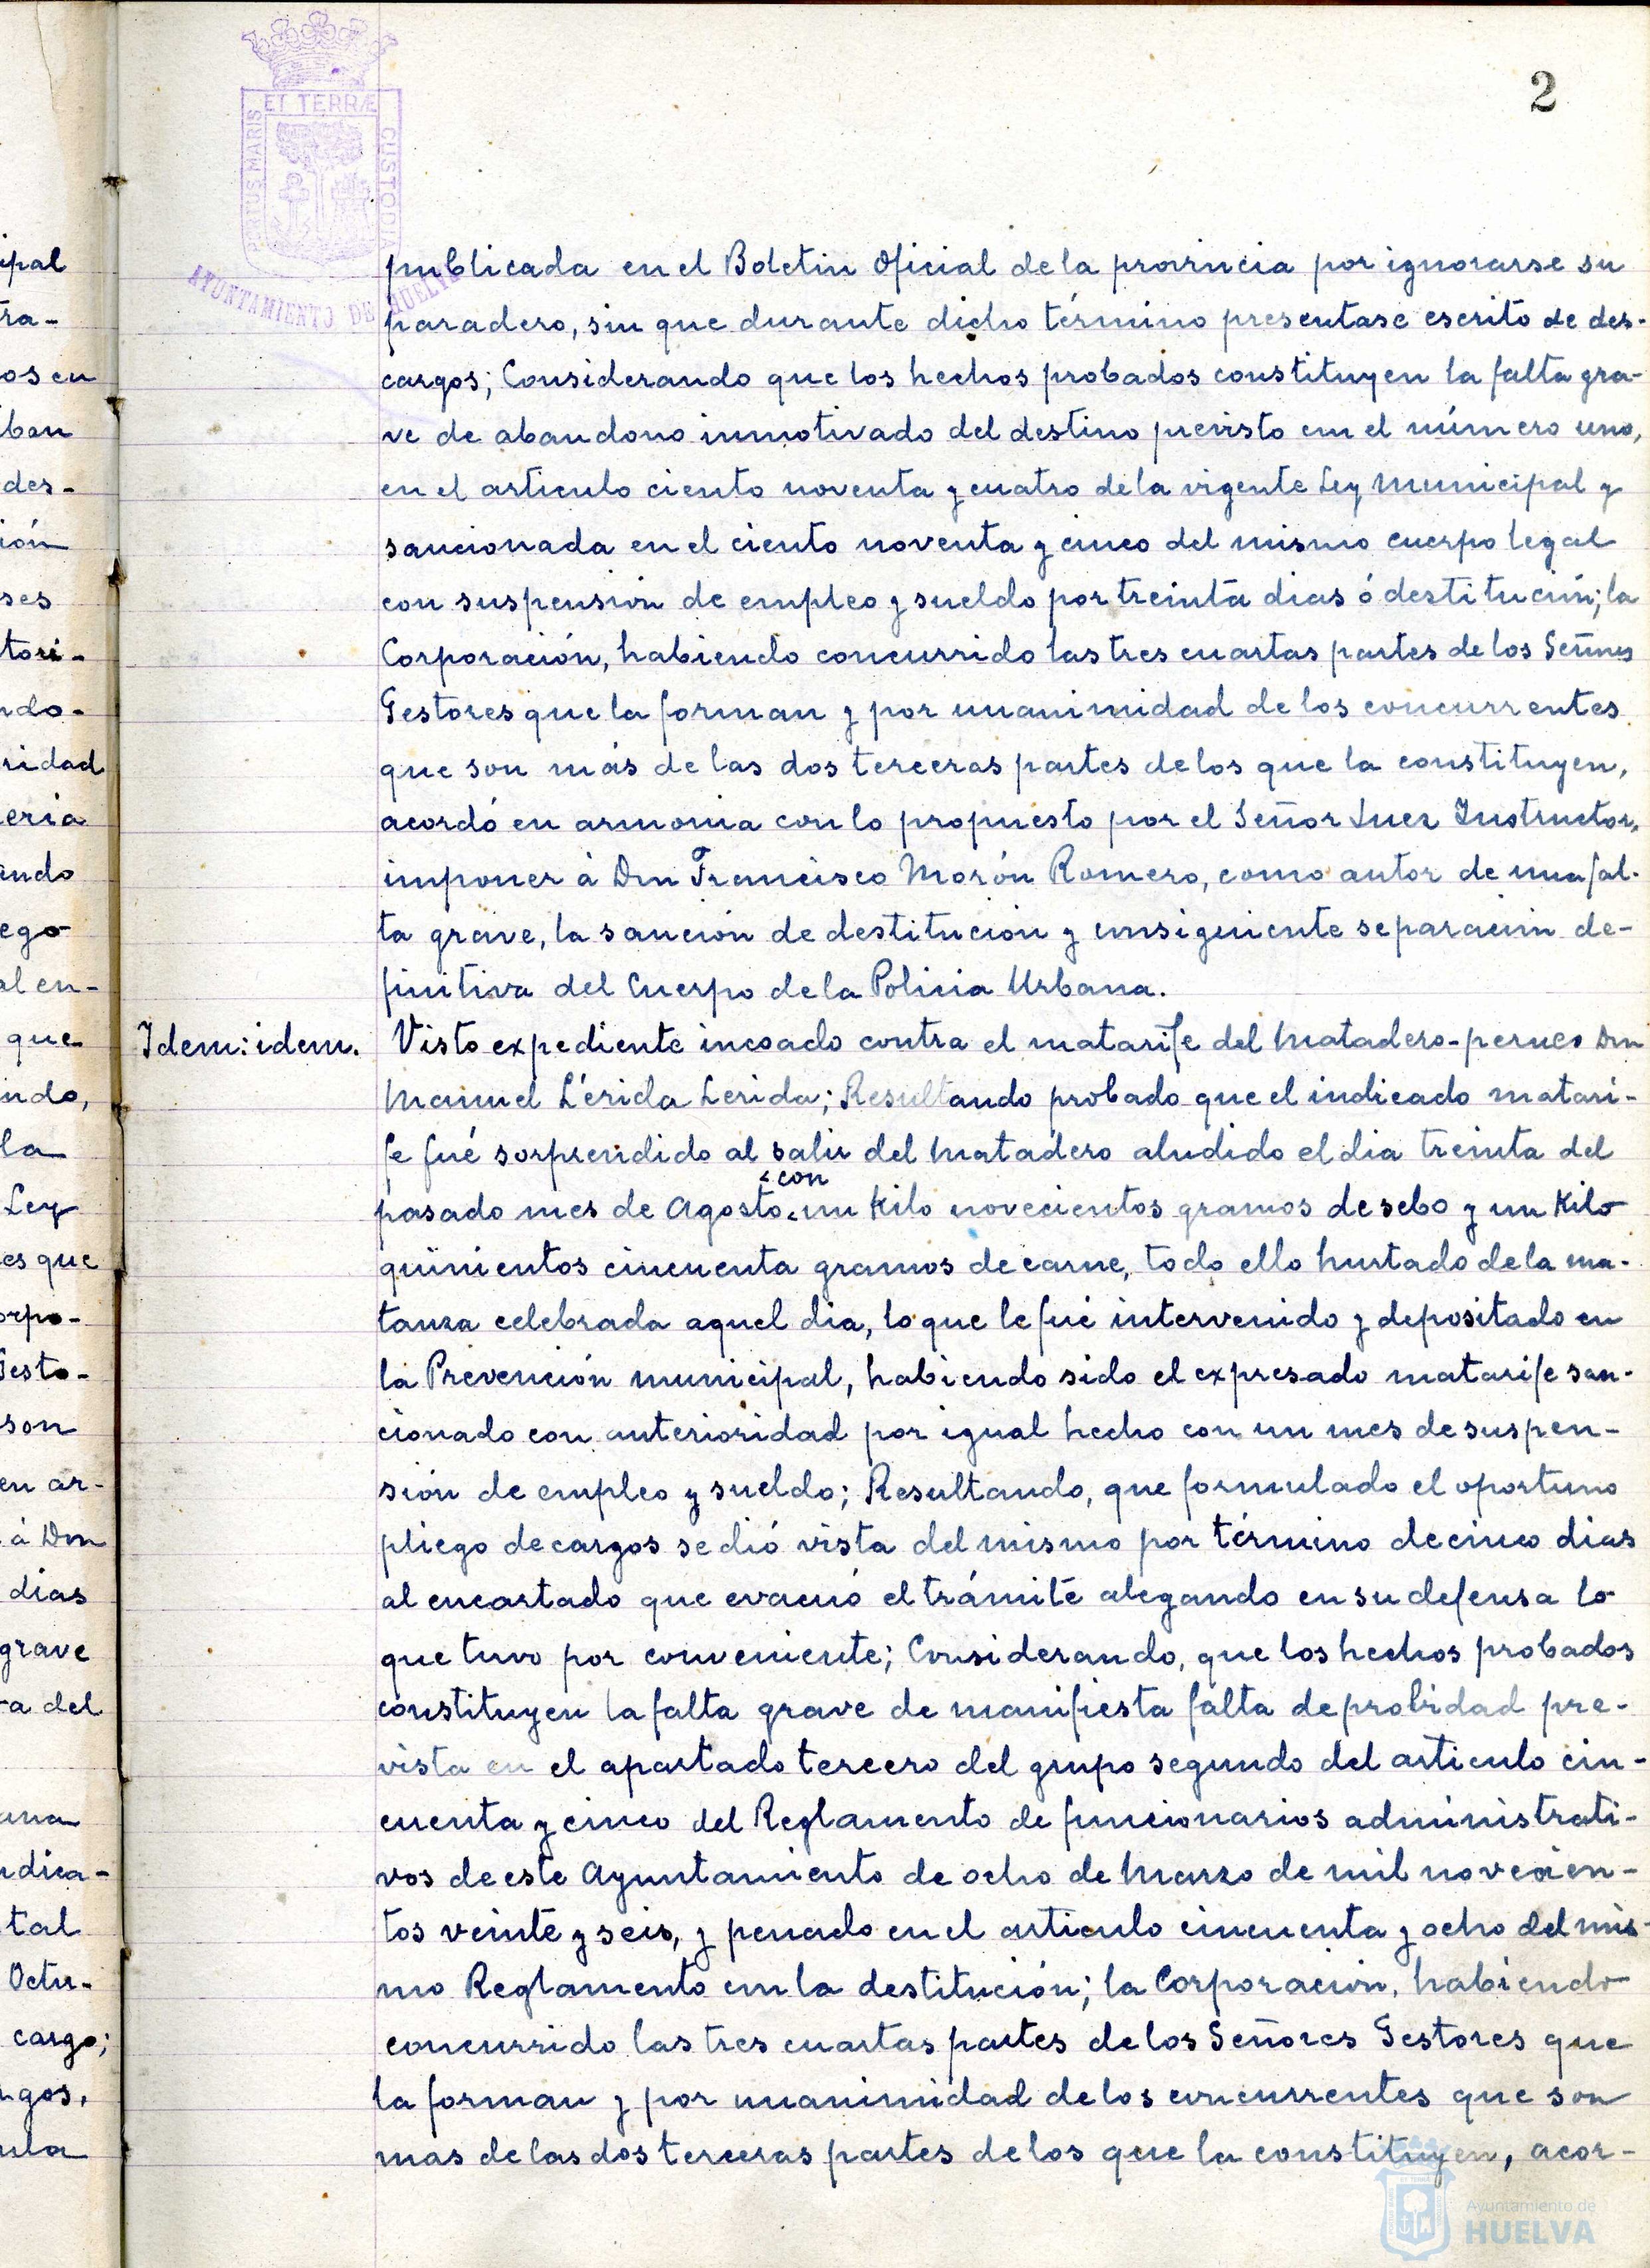 2
ET TERRÆ
PORTUS MARIS
CUSTODIA
AYUNTAMIENTO DE HUELVA
publicada en el Boletin Oficial de la provincia por ignorarse su
paradero, sin que durante dicho término presentase escrito de des-
cargos; Considerando que los hechos probados constituyen la falta gra-
ve de abandono inmotivado del destino previsto en el número uno,
en el articulo ciento noventa y cuatro de la vigente Ley Municipal y
sancionada en el ciento noventa y cinco del mismo cuerpo legal
con suspensión de empleo y sueldo por treinta dias ó destitución; la
Corporación, habiendo concurrido las tres cuartas partes de los Señores
Gestores que la forman y por unanimidad de los concurrentes
que son más de las dos terceras partes de los que la constituyen,
acordó en armonia con lo propuesto por el Señor Juez Instructor,
imponer à Don Francisco Morón Romero, como autor de una fal-
ta grave, la sanción de destitución y consiguiente separación de-
finitiva del Cuerpo de la Policia Urbana.
Idem: idem.
Visto expediente incoado contra el matarife del Matadero-perneo Don
Manuel Lérida Lerida; Resultando probado que el indicado matari-
fe fué sorprendido al salir del Matadero aludido el dia treinta del
pasado mes de Agosto con un Kilo novecientos gramos de sebo y un Kilo
quinientos cincuenta gramos de carne, todo ello hurtado de la ma-
tanza celebrada aquel dia, lo que le fué intervenido y depositado en
la Prevención municipal, habiendo sido el expresado matarife san-
cionado con anterioridad por igual hecho con un mes de suspen-
sión de empleo y sueldo; Resultando, que formulado el oportuno
pliego de cargos se dió vista del mismo por término de cinco dias
al encartado que evacuó el trámite alegando en su defensa lo
que tuvo por conveniente; Considerando, que los hechos probados
constituyen la falta grave de manifiesta falta de probidad pre-
vista en el apartado tercero del grupo segundo del articulo cin-
cuenta y cinco del Reglamento de funcionarios administrati-
vos de este Ayuntamiento de ocho de Marzo de mil novecien-
tos veinte y seis, y penado en el articulo cincuenta y ocho del mis-
mo Reglamento con la destitución; la Corporación, habiendo
concurrido las tres cuartas partes de los Señores Gestores que
la forman y por unanimidad de los concurrentes que son
mas de las dos terceras partes de los que la constituyen, acor-
Ayuntamiento de
HUELVA